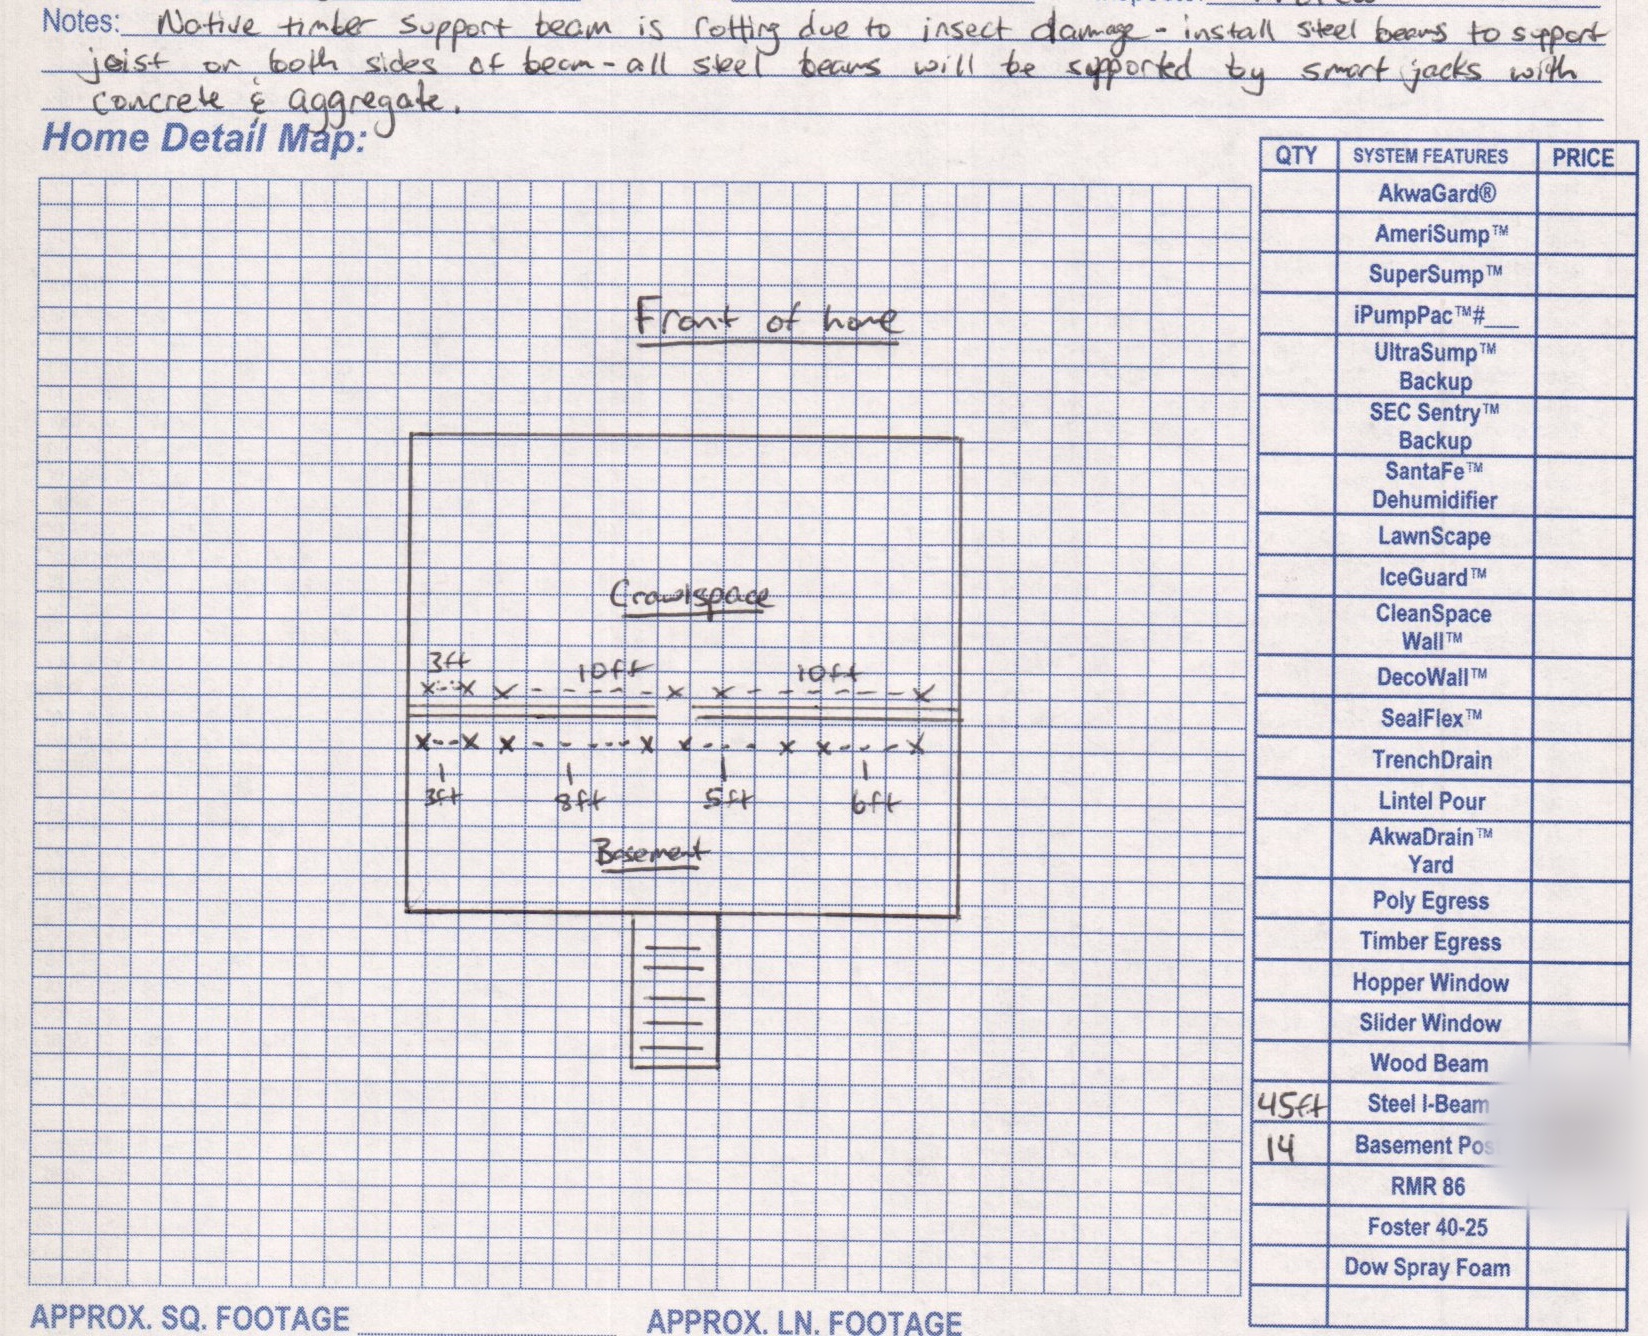 Notes: Native timber support beam is rotting due to insect damage - install steel beams to support
joist on both sides of beam - all steel beams will be supported by smart jacks with
concrete & aggregate.
Home Detail Map:
Front of home
Crawlspace
3ft 10ft 10ft
x---x x - - - - - - x x - - - - - - - x
x---x x - - - - - x x - - - - x x - - - - x
3ft 8ft 5ft 6ft
Basement
QTY SYSTEM FEATURES PRICE
AkwaGard®
AmeriSump™
SuperSump™
iPumpPac™#___
UltraSump™
Backup
SEC Sentry™
Backup
SantaFe™
Dehumidifier
LawnScape
IceGuard™
CleanSpace
Wall™
DecoWall™
SealFlex™
TrenchDrain
Lintel Pour
AkwaDrain™
Yard
Poly Egress
Timber Egress
Hopper Window
Slider Window
Wood Beam
45ft Steel I-Beam
14 Basement Pos
RMR 86
Foster 40-25
Dow Spray Foam
APPROX. SQ. FOOTAGE APPROX. LN. FOOTAGE